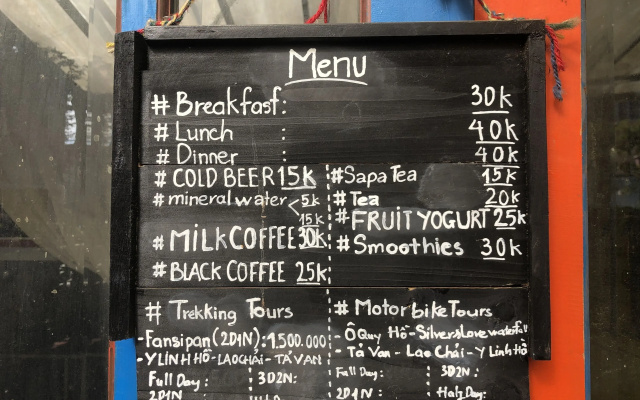 Menu
# Breakfast: 30k
# Lunch : 40k
# Dinner : 40k
# COLD BEER 15k
# mineral water < 5k
15k
# MiLK COFFEE 30k
# BLACK COFFEE 25k
# Sapa Tea 15k
# Tea 20k
# FRUIT YOGURT 25k
# Smoothies 30k
# Trekking Tours
- Fansipan (2D1N): 1,500.000
- Y LINH HỒ - LAO CHẢI - TẢ VAN
Full Day: 3D2N:
2D1N
# Motorbike Tours
- Ô Quy Hồ - Silvers Love waterfall
- Tả Van - Lao Chải - Y Linh Hồ
Full Day: 3D2N:
2D1N: Half Day: